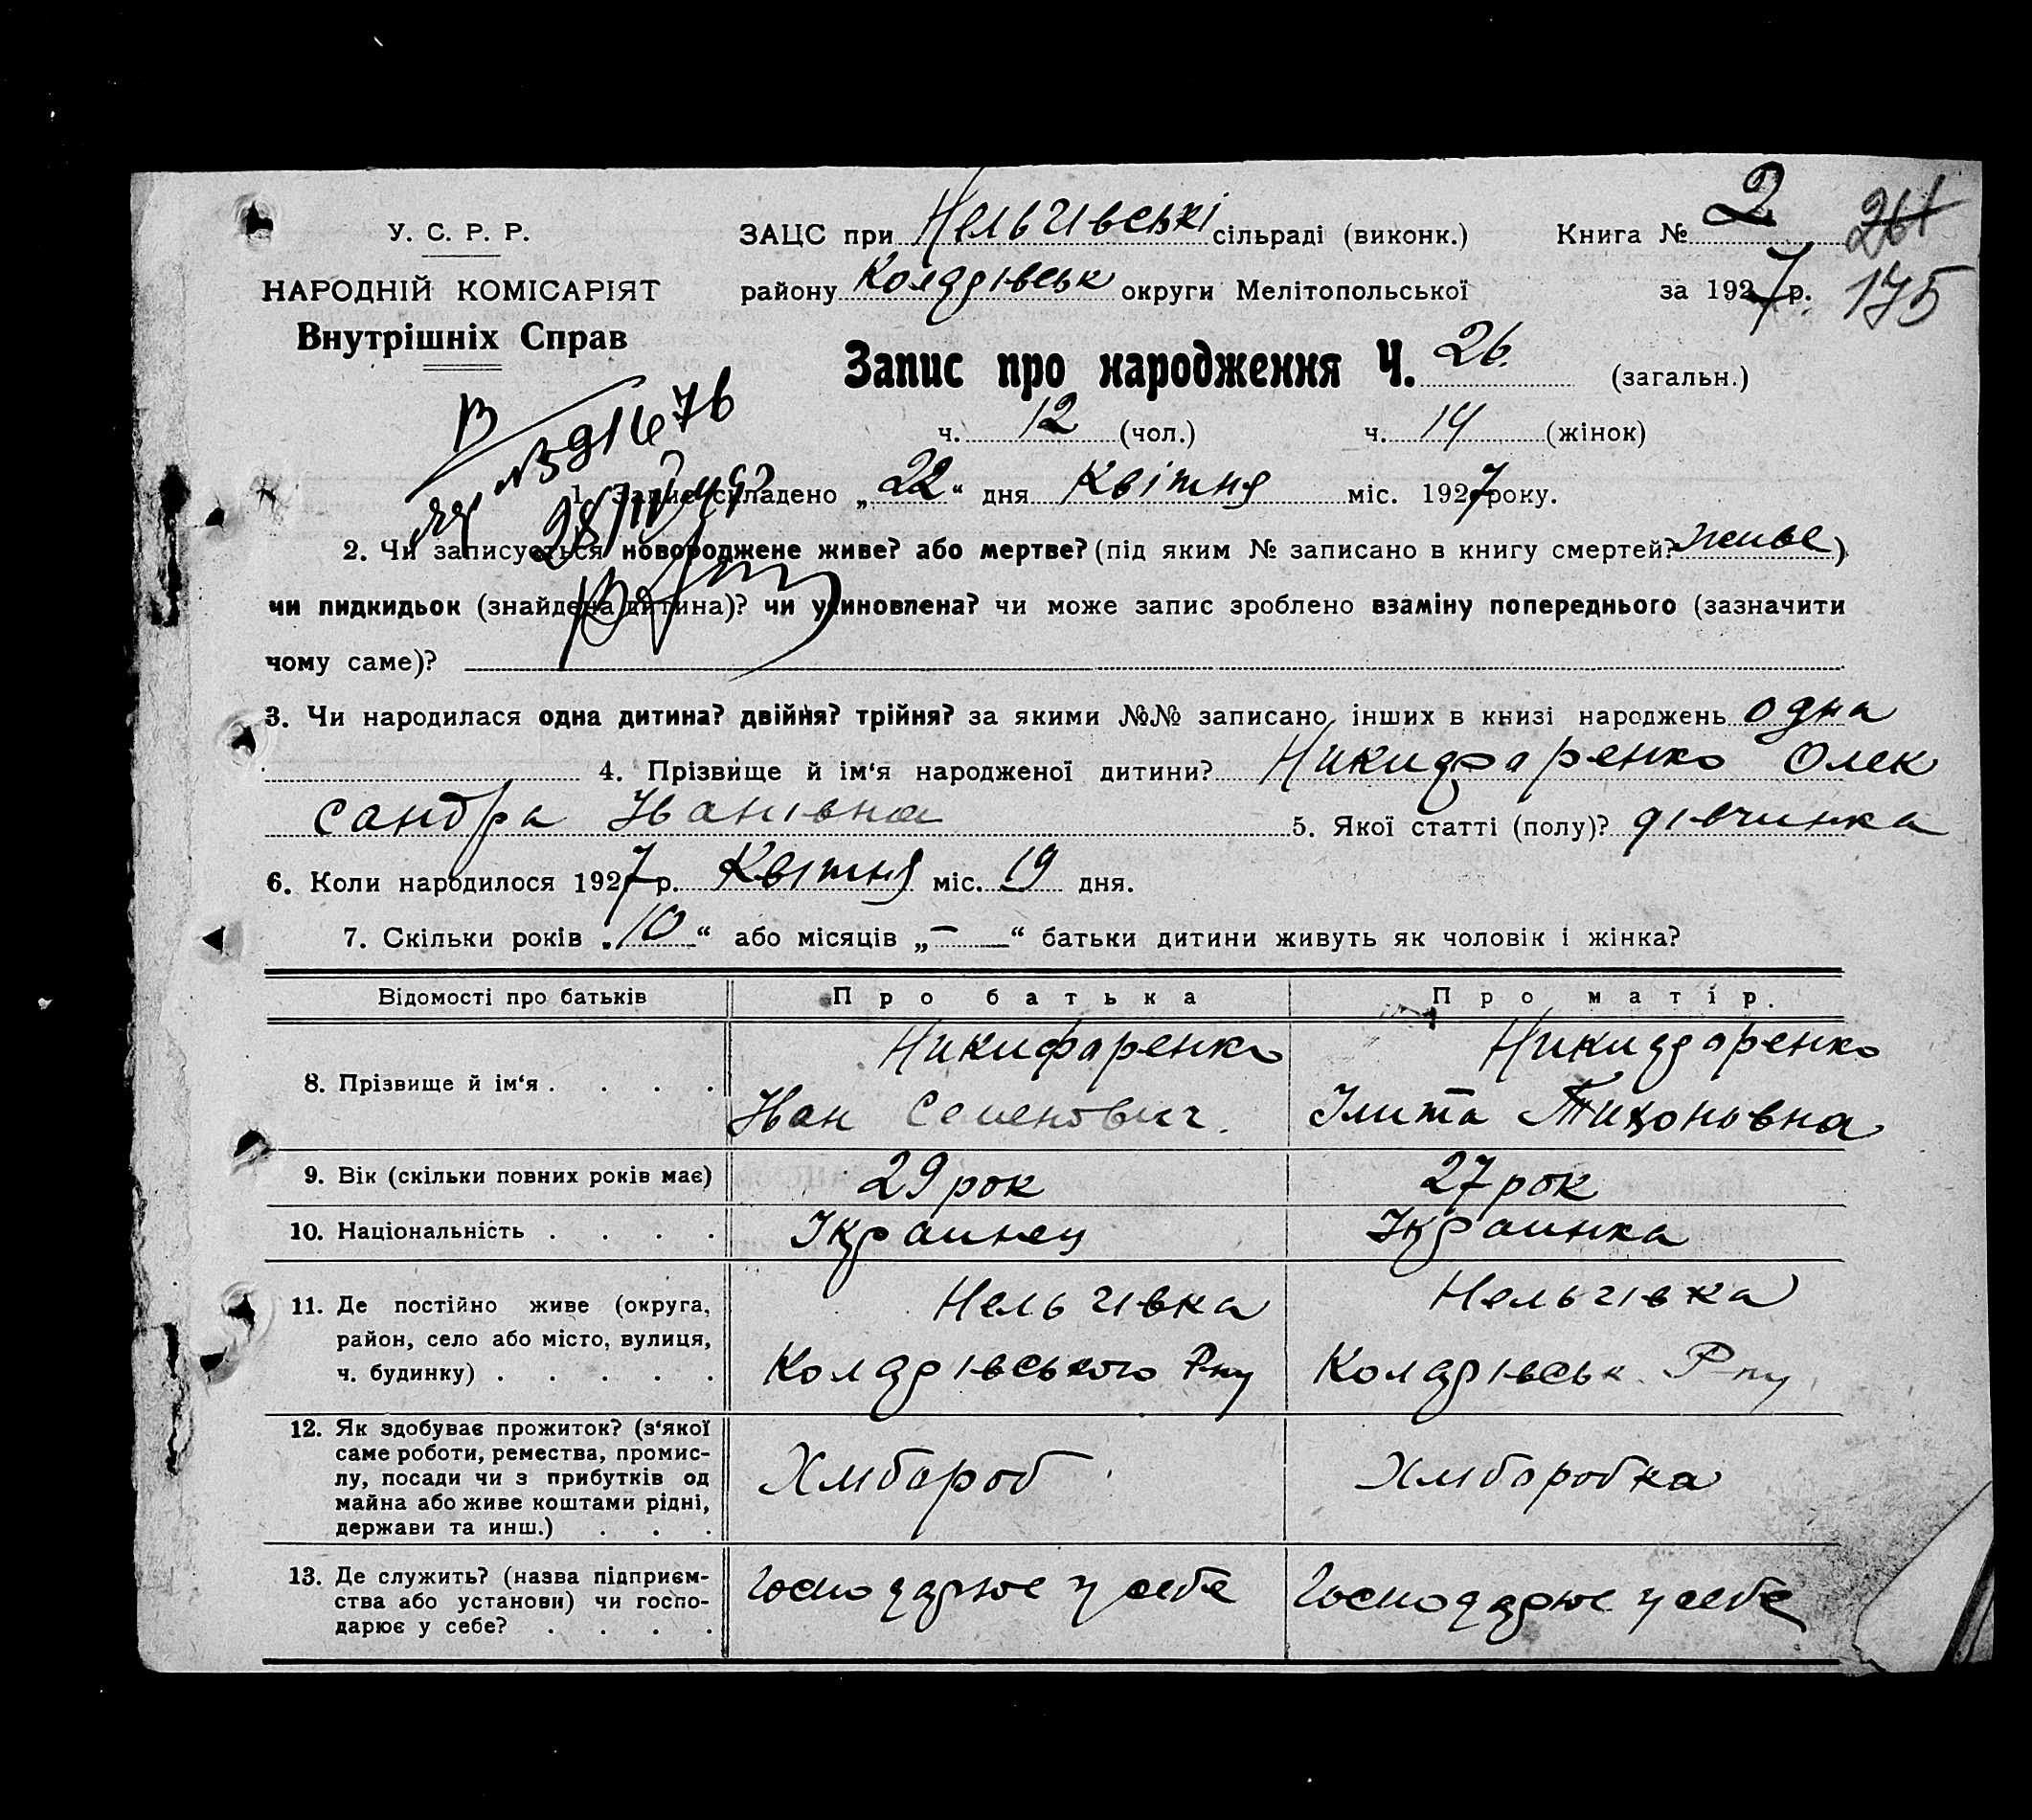 У. С. Р. Р.
НАРОДНІЙ КОМІСАРІЯТ
Внутрішніх Справ
ЗАЦС при Нельгівські сільраді (виконк.) Книга № 2 261
району Колдрівськ округи Мелітопольської за 1927 р. 175
Запис про народження Ч. 26. (загальн.)
ч. 12 (чол.) ч. 14 (жінок)
1. Запис складено „22“ дня Квітня міс. 1927 року.
2. Чи записується новороджене живе? або мертве? (під яким № записано в книгу смертей? живе)
чи пидкидьок (знайдена дитина)? чи усиновлена? чи може запис зроблено взаміну попереднього (зазначити
чому саме)?
3. Чи народилася одна дитина? двійня? трійня? за якими №№ записано інших в книзі народжень одна
4. Прізвище й ім‘я народженої дитини? Никифаренко Олек
сандра Іванівна 5. Якої статті (полу)? дівчинка
6. Коли народилося 1927 р. Квітня міс. 19 дня.
7. Скільки років „10“ або місяців „—“ батьки дитини живуть як чоловік і жінка?
Відомості про батьків Про батька Про матір.
8. Прізвище й ім‘я . . . . Никифаренко Никифаренко
Иван Семенович. Тихоновна
9. Вік (скільки повних років має) 29 рок 27 рок
10. Національність . . . . Украинец Украинка
11. Де постійно живе (округа, Нельгівка Нельгівка
район, село або місто, вулиця,
ч. будинку) . . . . . Колдрівського Рну Колдрівськ. Рну
12. Як здобуває прожиток? (з‘якої
саме роботи, ремества, промис-
лу, посади чи з прибутків од Хлібороб Хліборобка
майна або живе коштами рідні,
держави та инш.) . . .
13. Де служить? (назва підприєм-
ства або установи) чи госпо- Господарює у себе Господарює у себе
дарює у себе? . . . .